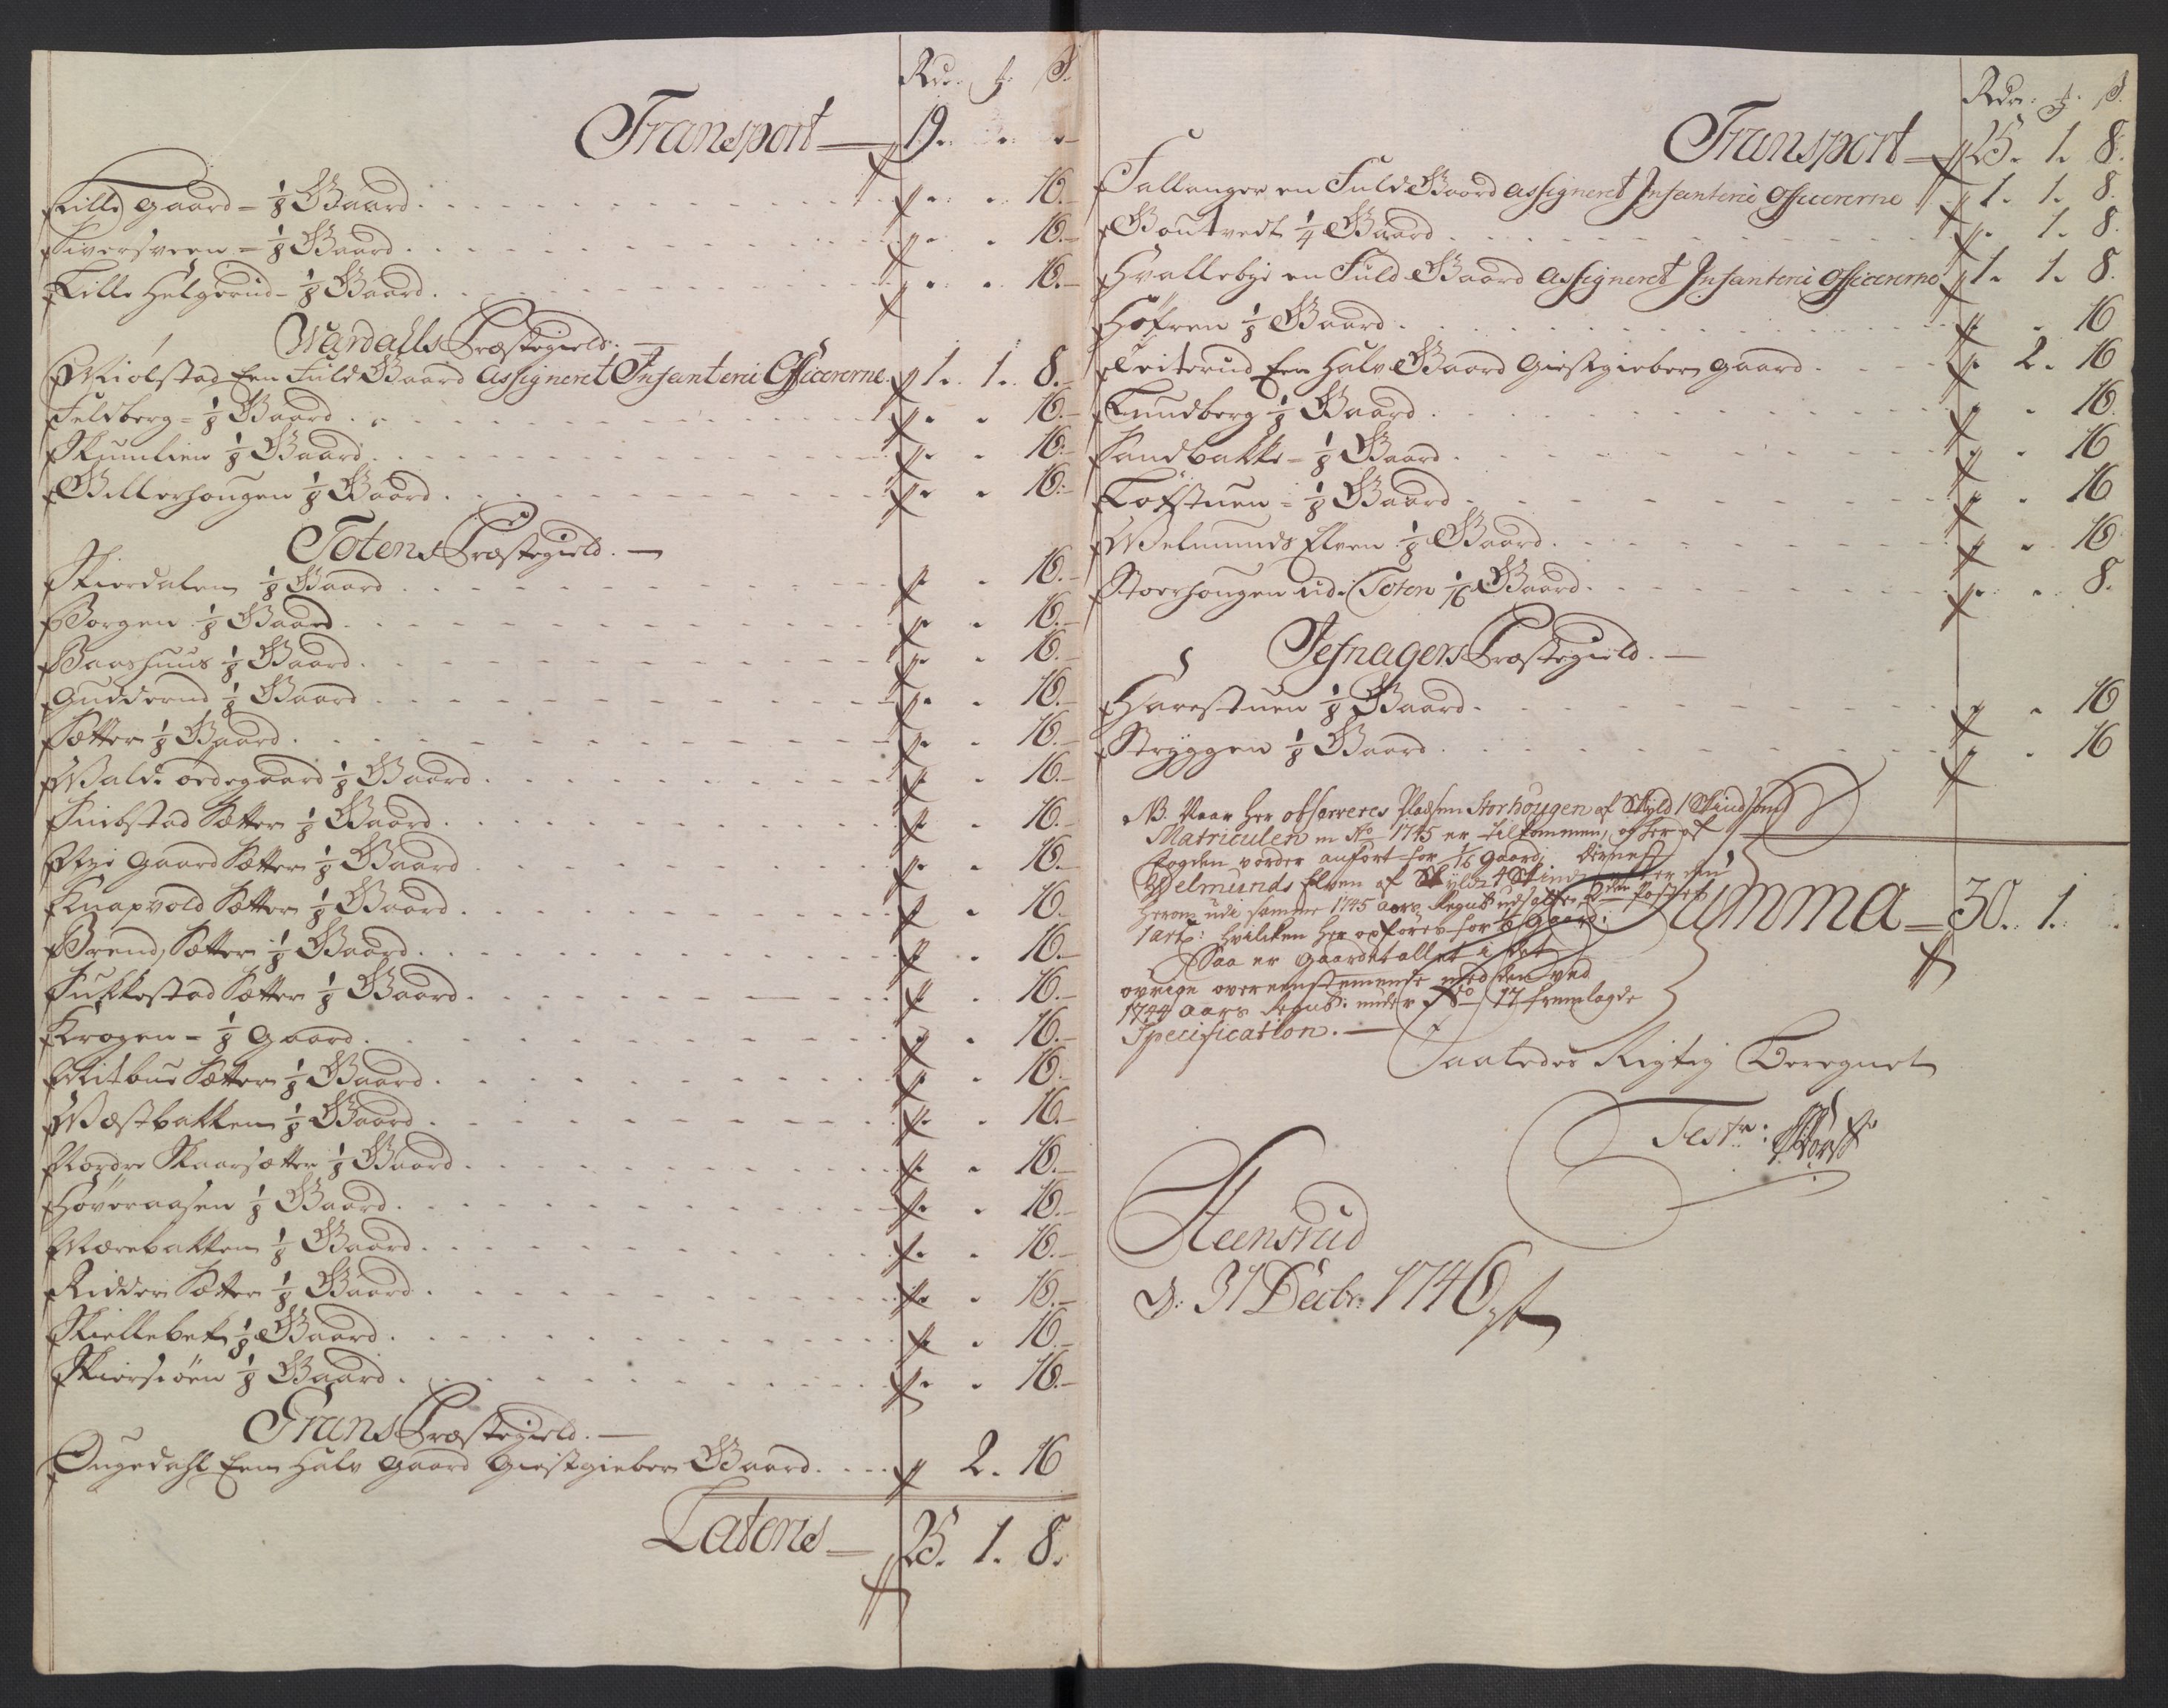 Rdr. ß.
Transport — 19. " "
Lille Gaard – 1/8 Gaard. " " 16.
Siversveen – 1/8 Gaard. " " 16.
Lille Helgerud – 1/8 Gaard. " " 16.
Wardahls Præstegield. —
Miølstad Een Fuld Gaard Assigneret Infanterie Officererne 1. 1. 8.
Feldberg – 1/8 Gaard. " " 16.
Skumlien 1/8 Gaard. " " 16.
Billerhougen 1/8 Gaard. " " 16.
Totens Præstegield. —
Skierdalen 1/8 Gaard " " 16.
Borgen 1/8 Gaard. " " 16.
Baashuus 1/8 Gaard. " " 16.
Gudderud 1/8 Gaard " " 16.
Sætter 1/8 Gaard. " " 16.
Wald ødegaard 1/8 Gaard. " " 16.
Sætter 1/8 Gaard. " " 16.
Gaard Sætter 1/8 Gaard " " 16.
Knapvold Sætter 1/8 Gaard. " " 16.
Brend Sætter 1/8 Gaard. " " 16.
Sukkestad Sætter 1/8 Gaard. " " 16.
Krogen – 1/8 Gaard. " " 16.
Sætter 1/8 Gaard. " " 16.
Westbakken 1/8 Gaard. " " 16.
Nordre Skaarsætter 1/8 Gaard. " " 16.
Høveraasen 1/8 Gaard. " " 16.
Mærebakken 1/8 Gaard. " " 16.
Ridder Sætter 1/8 Gaard. " " 16.
Skiellebek 1/8 Gaard. " " 16.
Skiersiøen 1/8 Gaard. " " 16.
Grans Præstegield. —
Dugedahl Een Halv Gaard Giestgieber Gaard. " 2. 16
Lateris — 25. 1. 8.
Rdr. ß.
Transport — 25. 1. 8.
Fallanger en Fuld Gaard Assigneret Infanterie Officererne 1. 1. 8.
Gountvedt 1/4 Gaard. " 1. 8.
Hvallebye en Fuld Gaard Assigneret Infanterie Officererne 1. 1. 8.
Høfren 1/8 Gaard. " " 16
Teiterud Een Halv Gaard Giestgieber Gaard. " 2. 16
Lundberg 1/8 Gaard. " " 16.
Sandbakke – 1/8 Gaard. " " 16
Løfstuen – 1/8 Gaard " " 16
Melmunds Elven 1/8 Gaard. " " 16
Storhougen udi Toten 1/16 Gaard. " " 8.
Jefnagers Præstegield. —
Harestuen 1/8 Gaard. " " 16
Stryggen 1/8 Gaard. " " 16
NB. Naar her observeres Pladsen Storhougen af Skyld 1 Skind som
Matriculen in Ao 1745 er tilkommen, og her af
Fogden vorder anført for 1/16 Gaard,
Welmunds Elven af Skyld 4 Skind
herom udi samme 1745 aars Regnsk: Postes
1 art: hvilken her opføres for 1/8 Gaard:
Saa er Gaardetallet i det
øvrige overeenstemende med den ved
1744 Aars Regnsk: under No 17 fremlagde
Specification. —
Summa — 30. 1. "
Saaledes Rigtig Beregnet
Test:
Steensrud
d: 31 Decbr: 1746